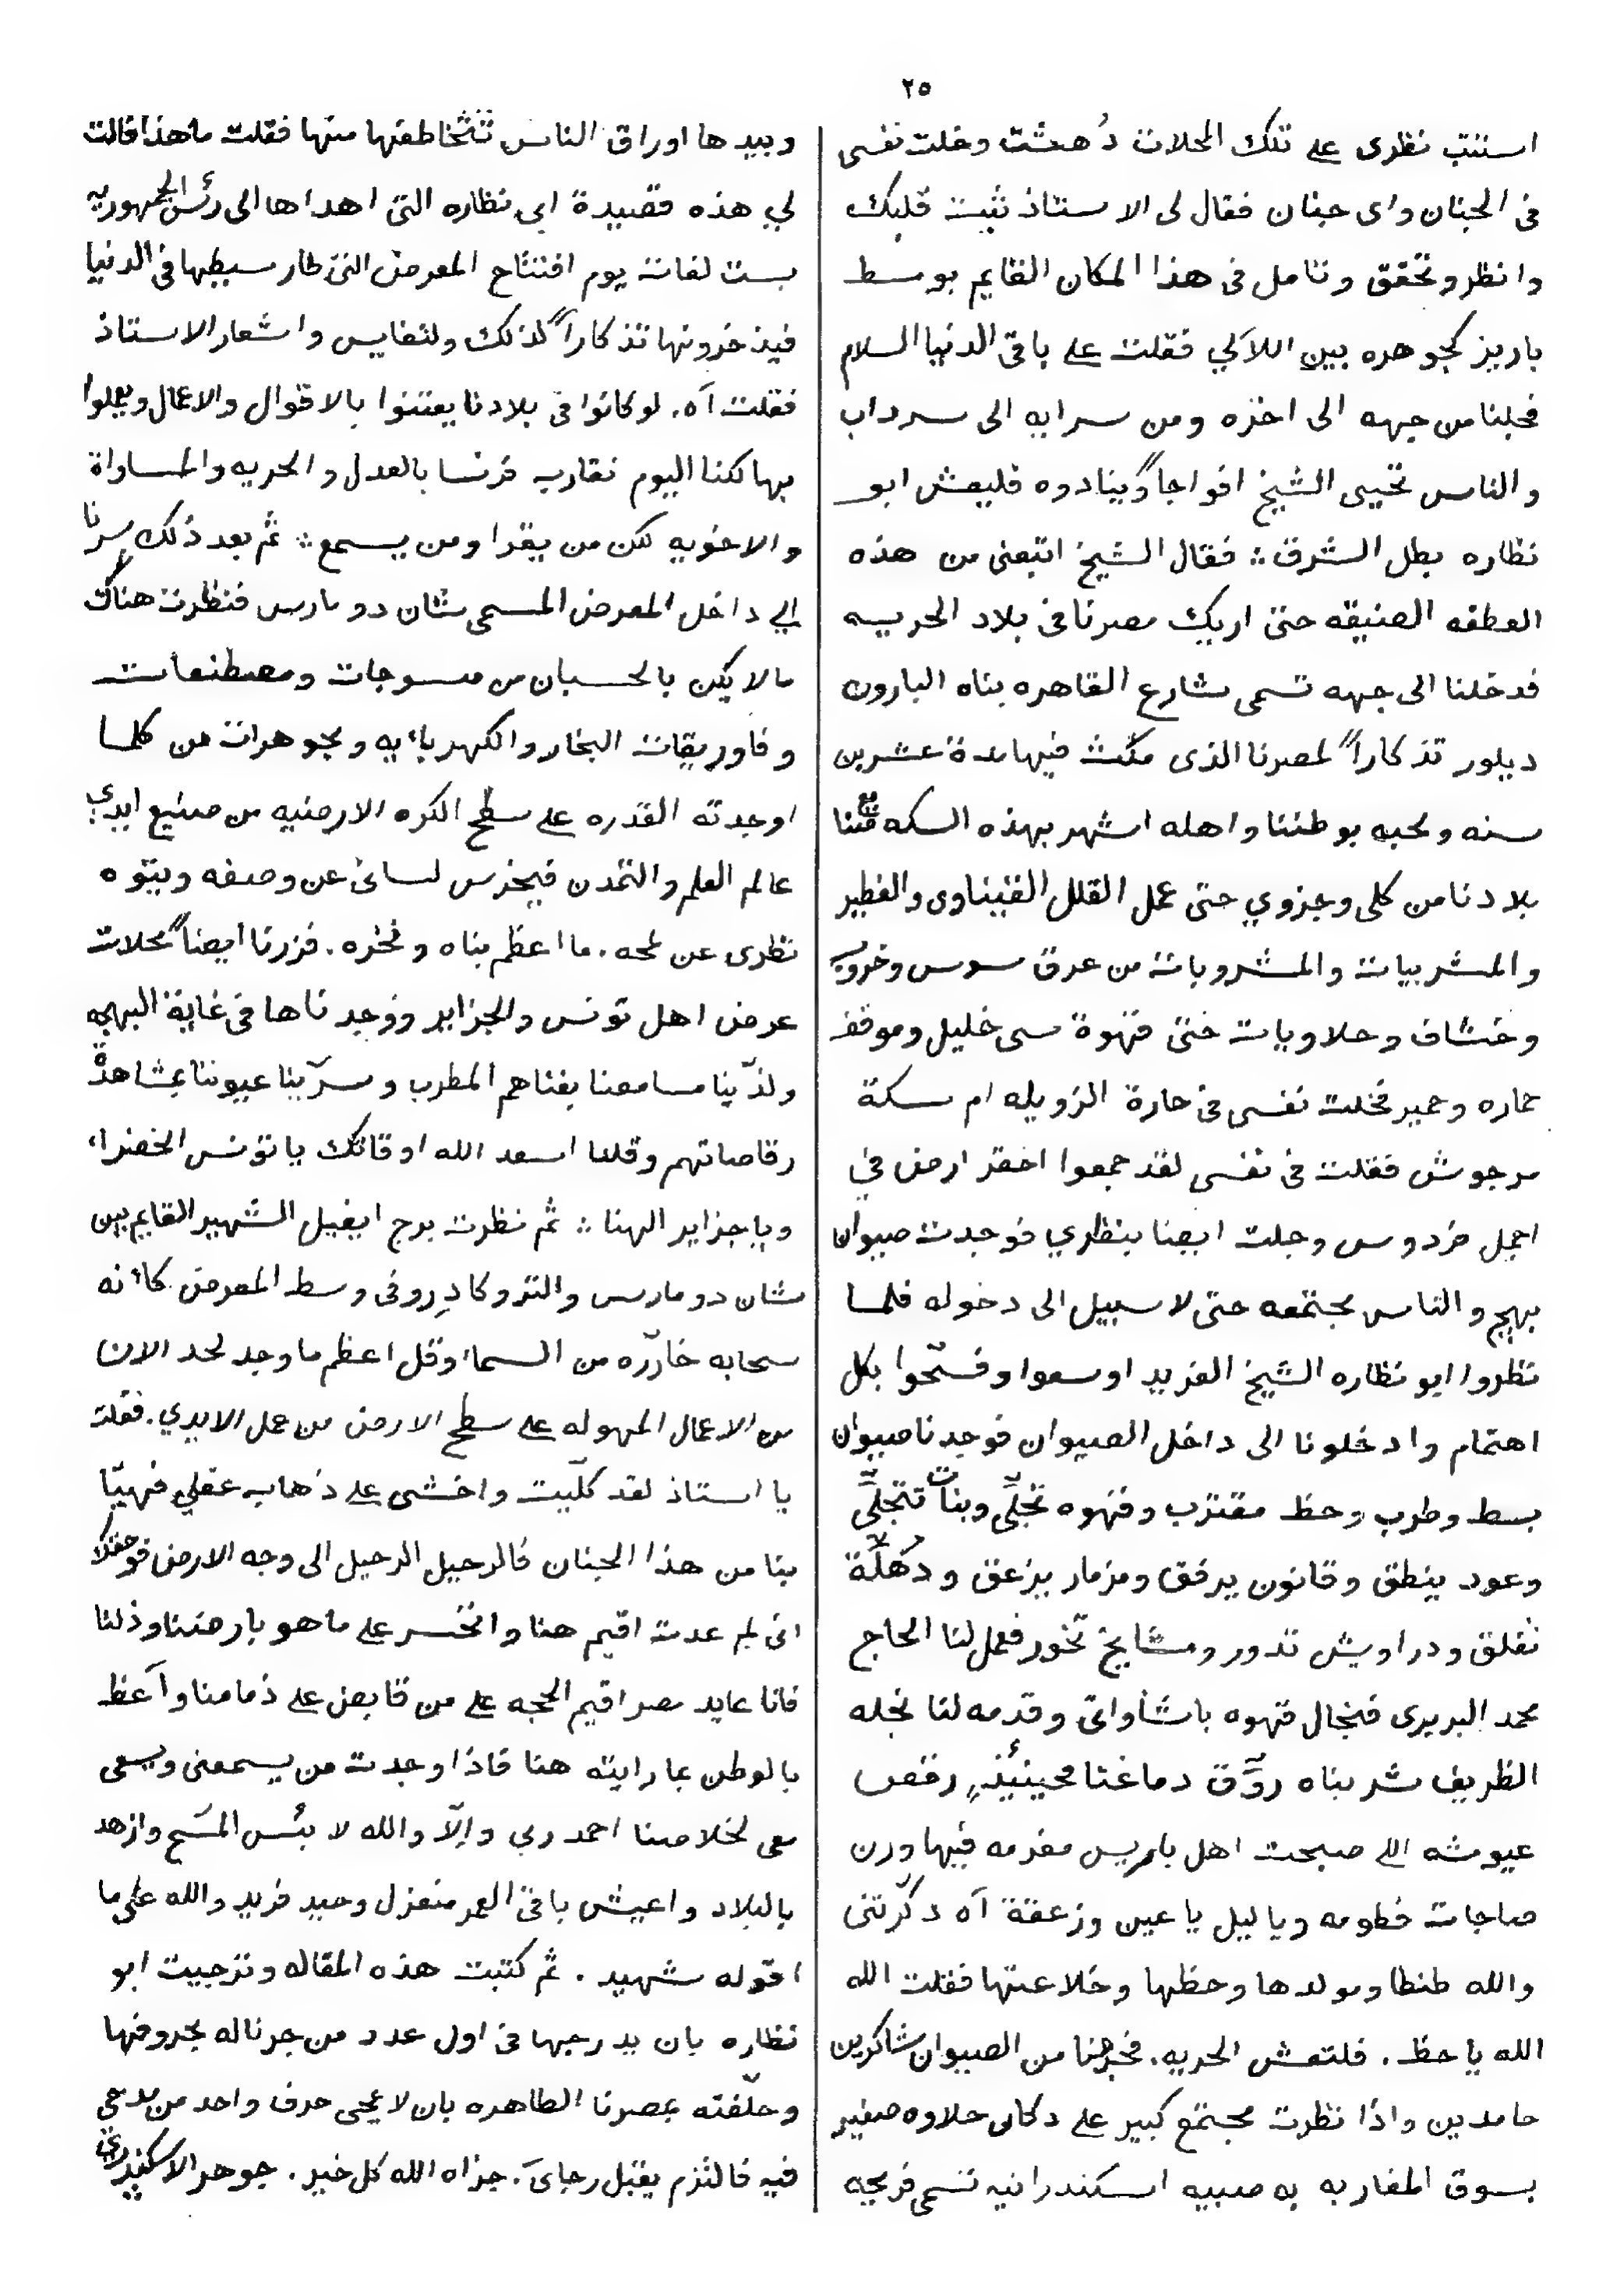 ٢٥
استتب نظرى على تلك المحلات دُهشت وخلت نفسى
فى الجنان واى جنان فقال لى الاستاذ ثبت قلبك
وانظر وتحقق وتامل فى هذا المكان القايم بوسط
باريز كجوهره بين اللآلي فقلت على باقى الدنيا السلام
فجلنا من جهه الى اخره ومن سرايه الى سرداب
والناس تحيى الشيخ افواجاً وينادوه فليعش ابو
نظاره بطل الشرق ؞ فقال الشيخ اتبعنى من هذه
العطفه الضيقه حتى اريك مصرنا فى بلاد الحريه
فدخلنا الى جهه تسمى شارع القاهره بناه البارون
ديلور تذكاراً لمصرنا الذى مكث فيها مدة عشرين
سنه ومحبه بوطننا واهله اشهر بهذه السكه متاع
بلادنا من كلى وجزوي حتى عمل القلل القيناوى والفطير
والمشربيات والمشروبات من عرق سوس وخروب
وخشاف وحلاويات حتى قهوة سى خليل وموقف
حماره وحمير فخلت نفسى فى حارة الزويله ام سكة
مرجوش فقلت فى نفسى لقد جمعوا احقر ارض في
اجمل فردوس وجلت ايضا بنظري فوجدت صيوان
بهيج والناس مجتمعه حتى لا سبيل الى دخوله فلما
نظروا ابو نظاره الشيخ الفريد اوسعوا وفسّحوا بكل
اهتمام وادخلونا الى داخل الصيوان فوجدنا صيوان
بسط وطرب وحظ مقترب وقهوه تجلّى وبنات تتجلّى
وعود ينطق وقانون يرفق ومزمار يزعق ودُهلّة
تفلق ودراويش تدور ومشايخ تخور فعمل لنا الحاج
محمد البربرى فنجال قهوه باشاواتى وقدمه لنا نجله
الظريف شربناه روّق دماغنا محينئذٍ رقص
عيوشه اللى صبحت اهل باريس مغرمه فيها ورن
صاجات خطومه ويا ليل يا عين وزعقة آه ذكّرتنى
والله طنطا ومولدها وحظها وخلاعتها فقلت الله
الله يا حظ . فلتعش الحريه. فخرجنا من الصيوان شاكرين
حامدين واذا نظرت مجتمع كبير على دكان حلاوه صغير
بسوق المغاربه به صبيه اسكندرانيه تسمى فريجيه
وبيدها اوراق الناس تتخاطفها منها فقلت ما هذا قالت
لي هذه قصيدة ابى نظاره التى اهداها الى رئس الجمهوريه
بست لغات يوم افتتاح المعرض التى طار سيطها فى الدنيا
فيذخرونها تذكاراً لذلك ولنفايس واشعار الاستاذ
فقلت آه. لو كانوا فى بلادنا يعتنوا بالاقوال والاعمال ويعملوا
بها لكنا اليوم نقارب فرنسا بالعدل والحريه والمساواة
والاخويه لكن من يقرا ومن يسمع ؞ ثم بعد ذلك سرنا
الي داخل المعرض المسمى شان دو مارس فنظرت هناك
ما لا يكن بالحسبان من منسوجات ومصطنعات
وفاوريقات البخار والكهربائيه ومجوهرات من كلما
اوجدته القدره على سطح الكره الارضيه من صنيع ايدي
عالم العلم والتمدن فيخرس لسانى عن وصفه ويتوه
نظرى عن لمحه. ما اعظم بناه وفخره. فزرنا ايضاً محلات
عرض اهل تونس والجزاير ووجدناها فى غاية البهجه
ولذّينا مسامعنا بغناهم المطرب وسرّينا عيوننا بمشاهدة
رقاصاتهم وقلنا اسعد الله اوقاتك يا تونس الخضراء
ويا جزاير الهنا ؞ ثم نظرت برج ايفيل الشهير القايم بين
شان دو مارس والتروكاديرو فى وسط المعرض كانه
سحابه خارّره من السماء وقل اعظم ما وجد لحد الان
من الاعمال المهوله على سطح الارض من عمل الايدي. فقلت
يا استاذ لقد كلّيت واخشى على ذهاب عقلي فهيّا
بنا من هذا الجنان فالرحيل الرحيل الى وجه الارض فوحقك
انى لم عدت اقيم هنا واتحسر على ما هو بارضنا وذلنا
فانا عايد مصر اقيم الحجه على من قابض على ذمامنا وآعظ
بالوطن بما رايته هنا فاذا وجدت من يسمعنى ويسعى
معى لخلاصنا احمد ربى وإلّا والله لا بئس المسَح وازهد
بالبلاد واعيش باقى العمر منعزل وحيد فريد والله على ما
اقوله شهيد . ثم كتبت هذه المقاله وترجيت ابو
نظاره بان يدرجها فى اول عدد من جرناله بحروفها
وحلّفته بمصرنا الطاهره بان لا يمحى حرف واحد من مدحى
فيه فالتزم يقبل رجاىَ. جزاه الله كل خير . جوهر الاسكندرى